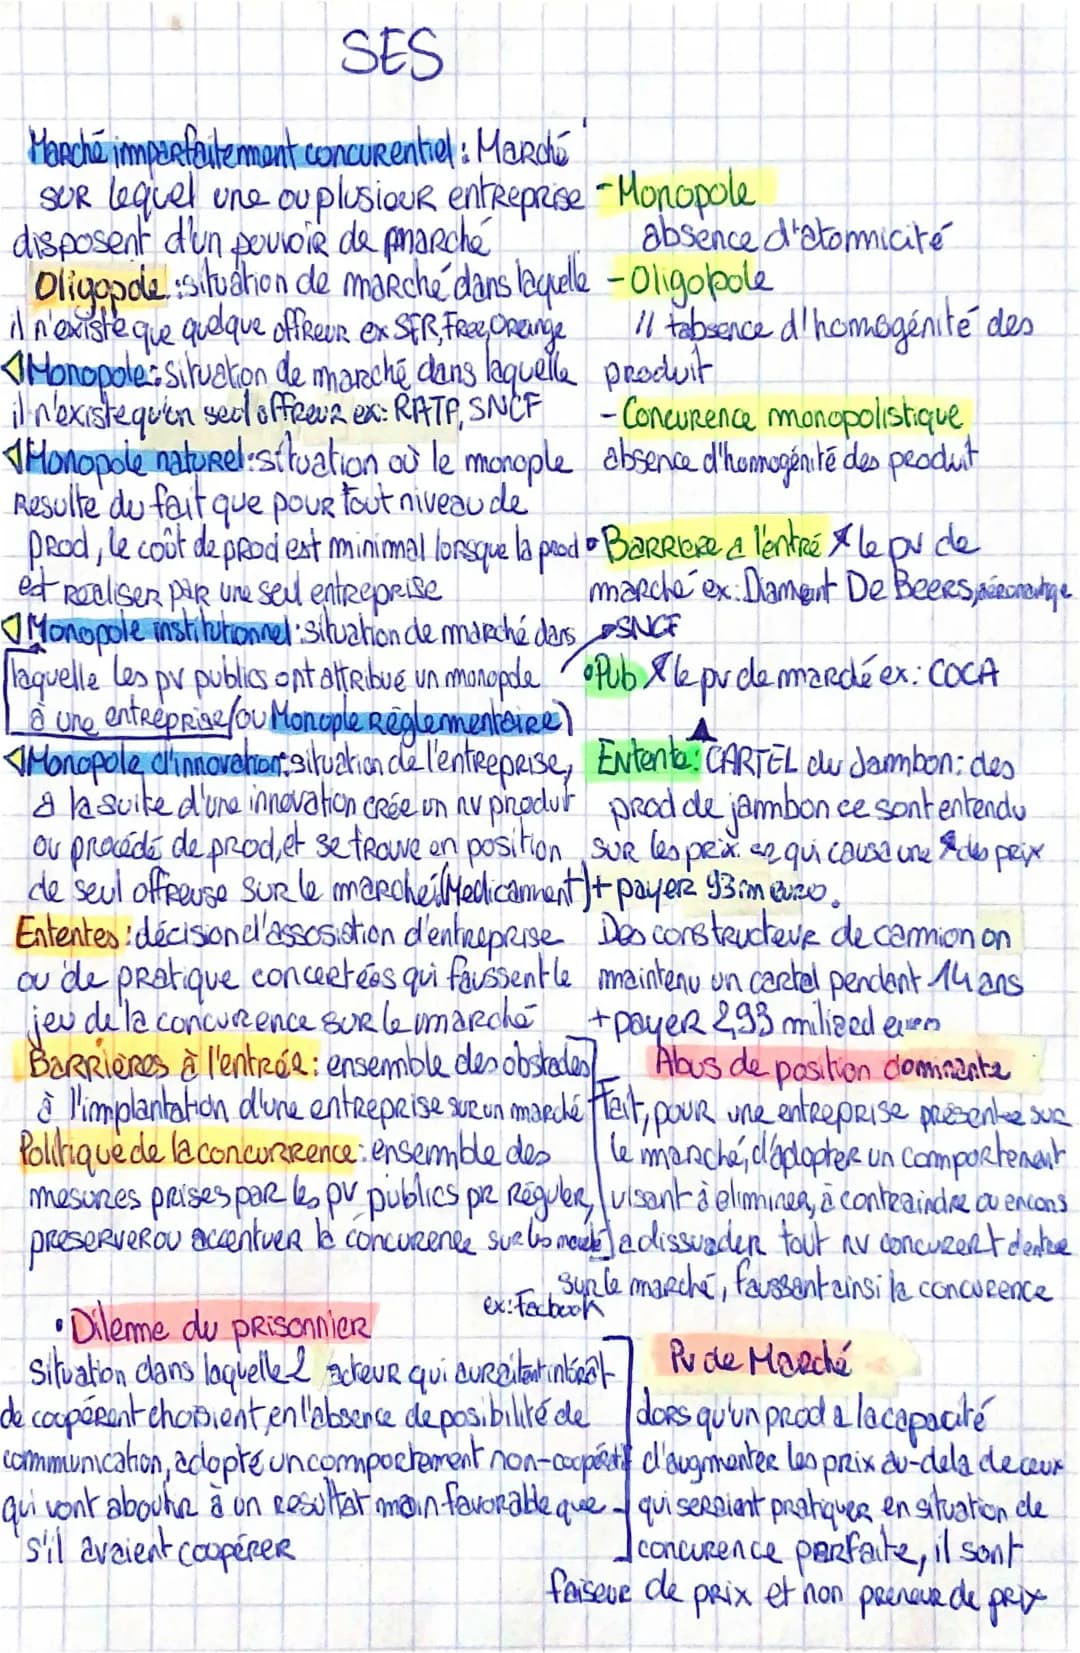 SES
Marché imparfaitement concurentiel : Marché
sur lequel une ou plusieur entreprise
disposent d'un pouvoir de marché
Oligopole : situation de marché dans laquelle
il n'existe que quelque offreur ex SFR, Free, Orange
Monopole : situation de marché dans laquelle
il n'existe qu'un seul offreur ex: RATP, SNCF
Monopole naturel : situation où le monople
Resulte du fait que pour tout niveau de
prod, le coût de prod est minimal lorsque la prod
est realiser par une seul entreprise
Monopole institutionnel : situation de marché dans
laquelle les pv publics ont attribué un monopole
à une entreprise (ou Monople Réglementaire)
Monopole d'innovation : situation de l'entreprise,
à la suite d'une innovation crée un nv produit
ou procédé de prod, et se trouve en position
de seul offreuse sur le marché (Medicamment)
Ententes : décision d'assosiation d'entreprise
ou de pratique concertées qui faussent le
jeu de la concurence sur le marché
Barrières à l'entrée : ensemble des obstacles
à l'implantation d'une entreprise sur un marché
Politique de la concurrence : ensemble des
mesures prises par les pv publics pr réguler,
preserver ou accentuer la concurence sur les marché
• Dileme du prisonnier
Situation dans laquelle 2 acteur qui auraitent intérêt
de coopérent choisient, en l'absence de posibilité de
communication, adopté un comportement non-coopératif
qui vont aboutir à un resultat moin favorable que
s'il avaient coopérer
- Monopole
absence d'atomicité
- Oligopole
// + absence d'homogénité des
produit
- Concurence monopolistique
absence d'homogénité des produit
• Barrière à l'entré ↗ le pv de
marché ex: Diamant De Beers,
SNCF
• Pub ↗ le pv de marché ex: COCA
Entente : CARTEL du Jambon: des
prod de jambon ce sont entendu
sur les prix ce qui causa une ↗ des prix
+ payer 93 m euro.
Des constructeur de camion on
maintenu un cartel pendant 14 ans
+ payer 2,93 miliard euro
Abus de position dominante
Fait, pour une entreprise présente sur
le marché, d'adopter un comportement
visant à éliminer, à contraindre ou encore
a dissuader tout nv concurent d'entre
sur le marché, faussant ainsi la concurence
ex: Facbook
Pv de Marché
Lorsqu'un prod a la capacité
d'augmenter les prix au-dela de ceux
qui seraient pratiquer en situation de
concurence parfaite, il sont
faiseur de prix et non preneur de prix